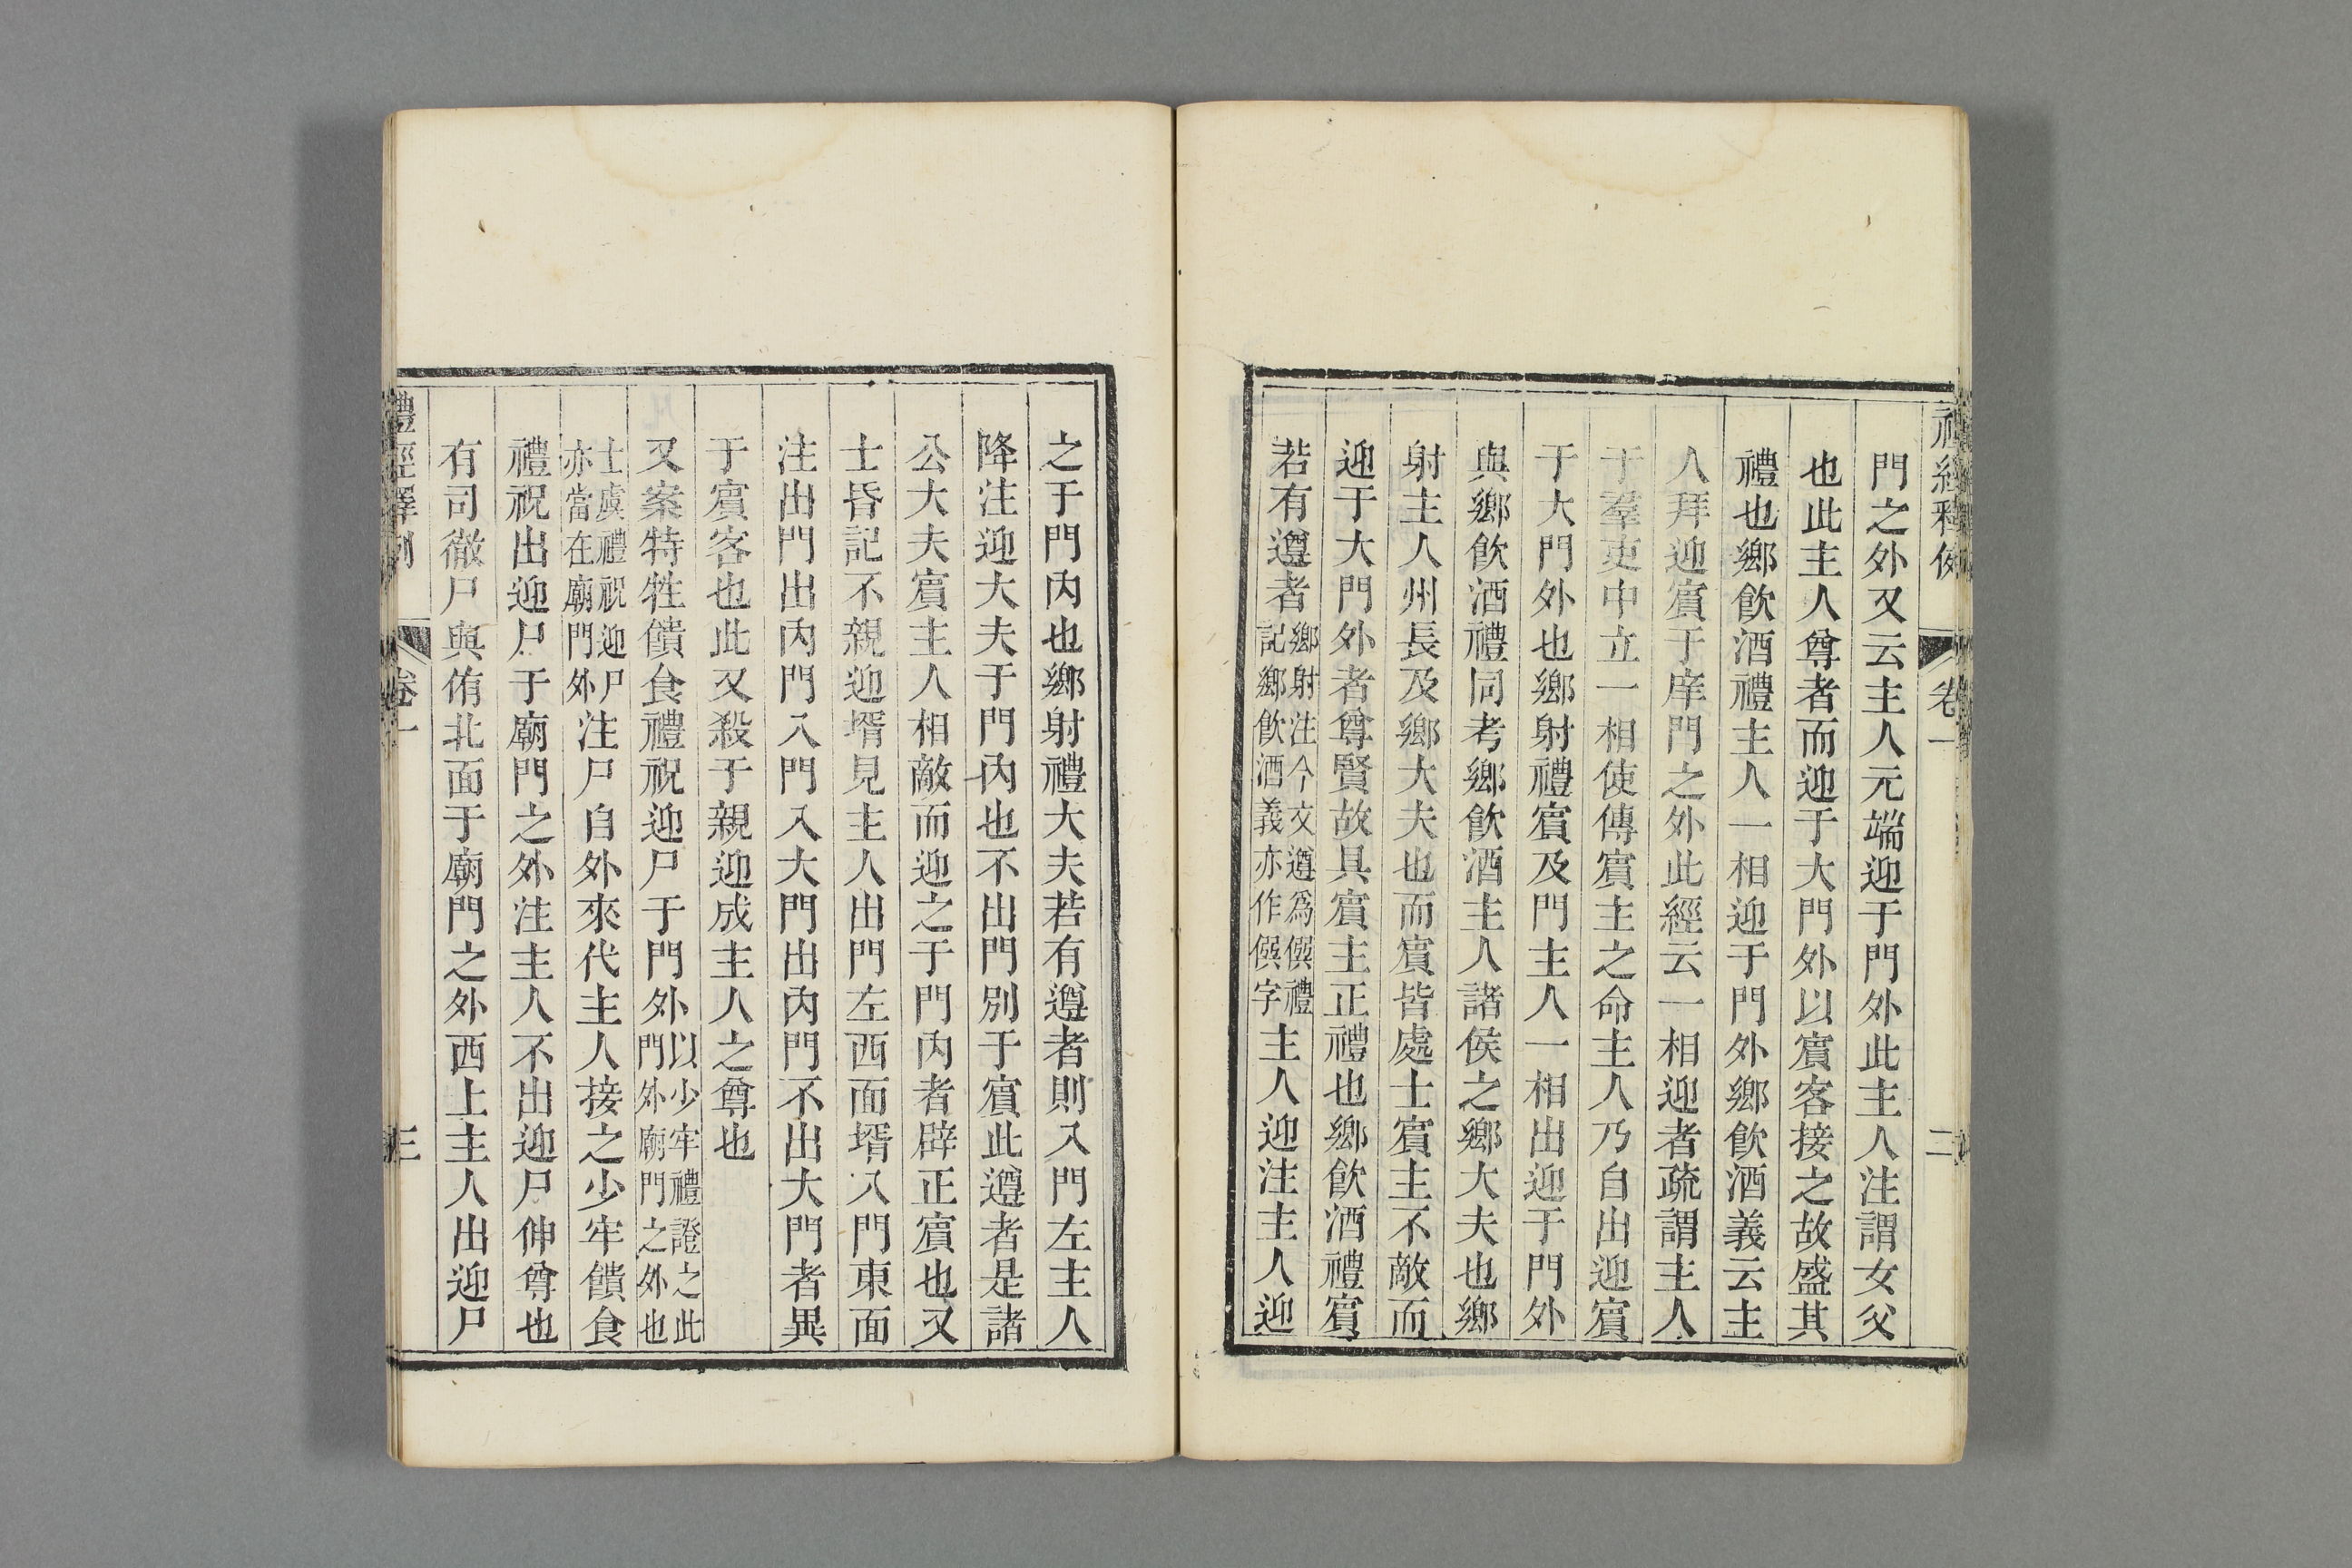 禮經釋例 卷一 二
門之外又云主人元端迎于門外此主人注謂女父
也此主人尊者而迎于大門外以賔客接之故盛其
禮也鄉飲酒禮主人一相迎于門外鄉飲酒義云主
人拜迎賔于庠門之外此經云一相迎者疏謂主人
于羣吏中立一相使傳賔主之命主人乃自出迎賔
于大門外也鄉射禮賔及門主人一相出迎于門外
與鄉飲酒禮同考鄉飲酒主人諸侯之鄉大夫也鄉
射主人州長及鄉大夫也而賔皆處士賔主不敵而
迎于大門外者尊賢故具賔主正禮也鄉飲酒禮賔
若有遵者鄉射注今文遵爲僎禮記鄉飲酒義亦作僎字主人迎注主人迎
之于門内也鄉射禮大夫若有遵者則入門左主人
降注迎大夫于門内也不出門別于賔此遵者是諸
公大夫賔主人相敵而迎之于門内者辟正賔也又
士昏記不親迎壻見主人出門左西面壻入門東面
注出門出内門入門入大門出内門不出大門者異
于賔客也此又殺于親迎成主人之尊也
又案特牲饋食禮祝迎尸于門外以少牢禮證之此門外廟門之外也
士虞禮祝迎尸亦當在廟門外注尸自外來代主人接之少牢饋食
禮祝出迎尸于廟門之外注主人不出迎尸伸尊也
有司徹尸與侑北面于廟門之外西上主人出迎尸
禮經釋例 卷一 三